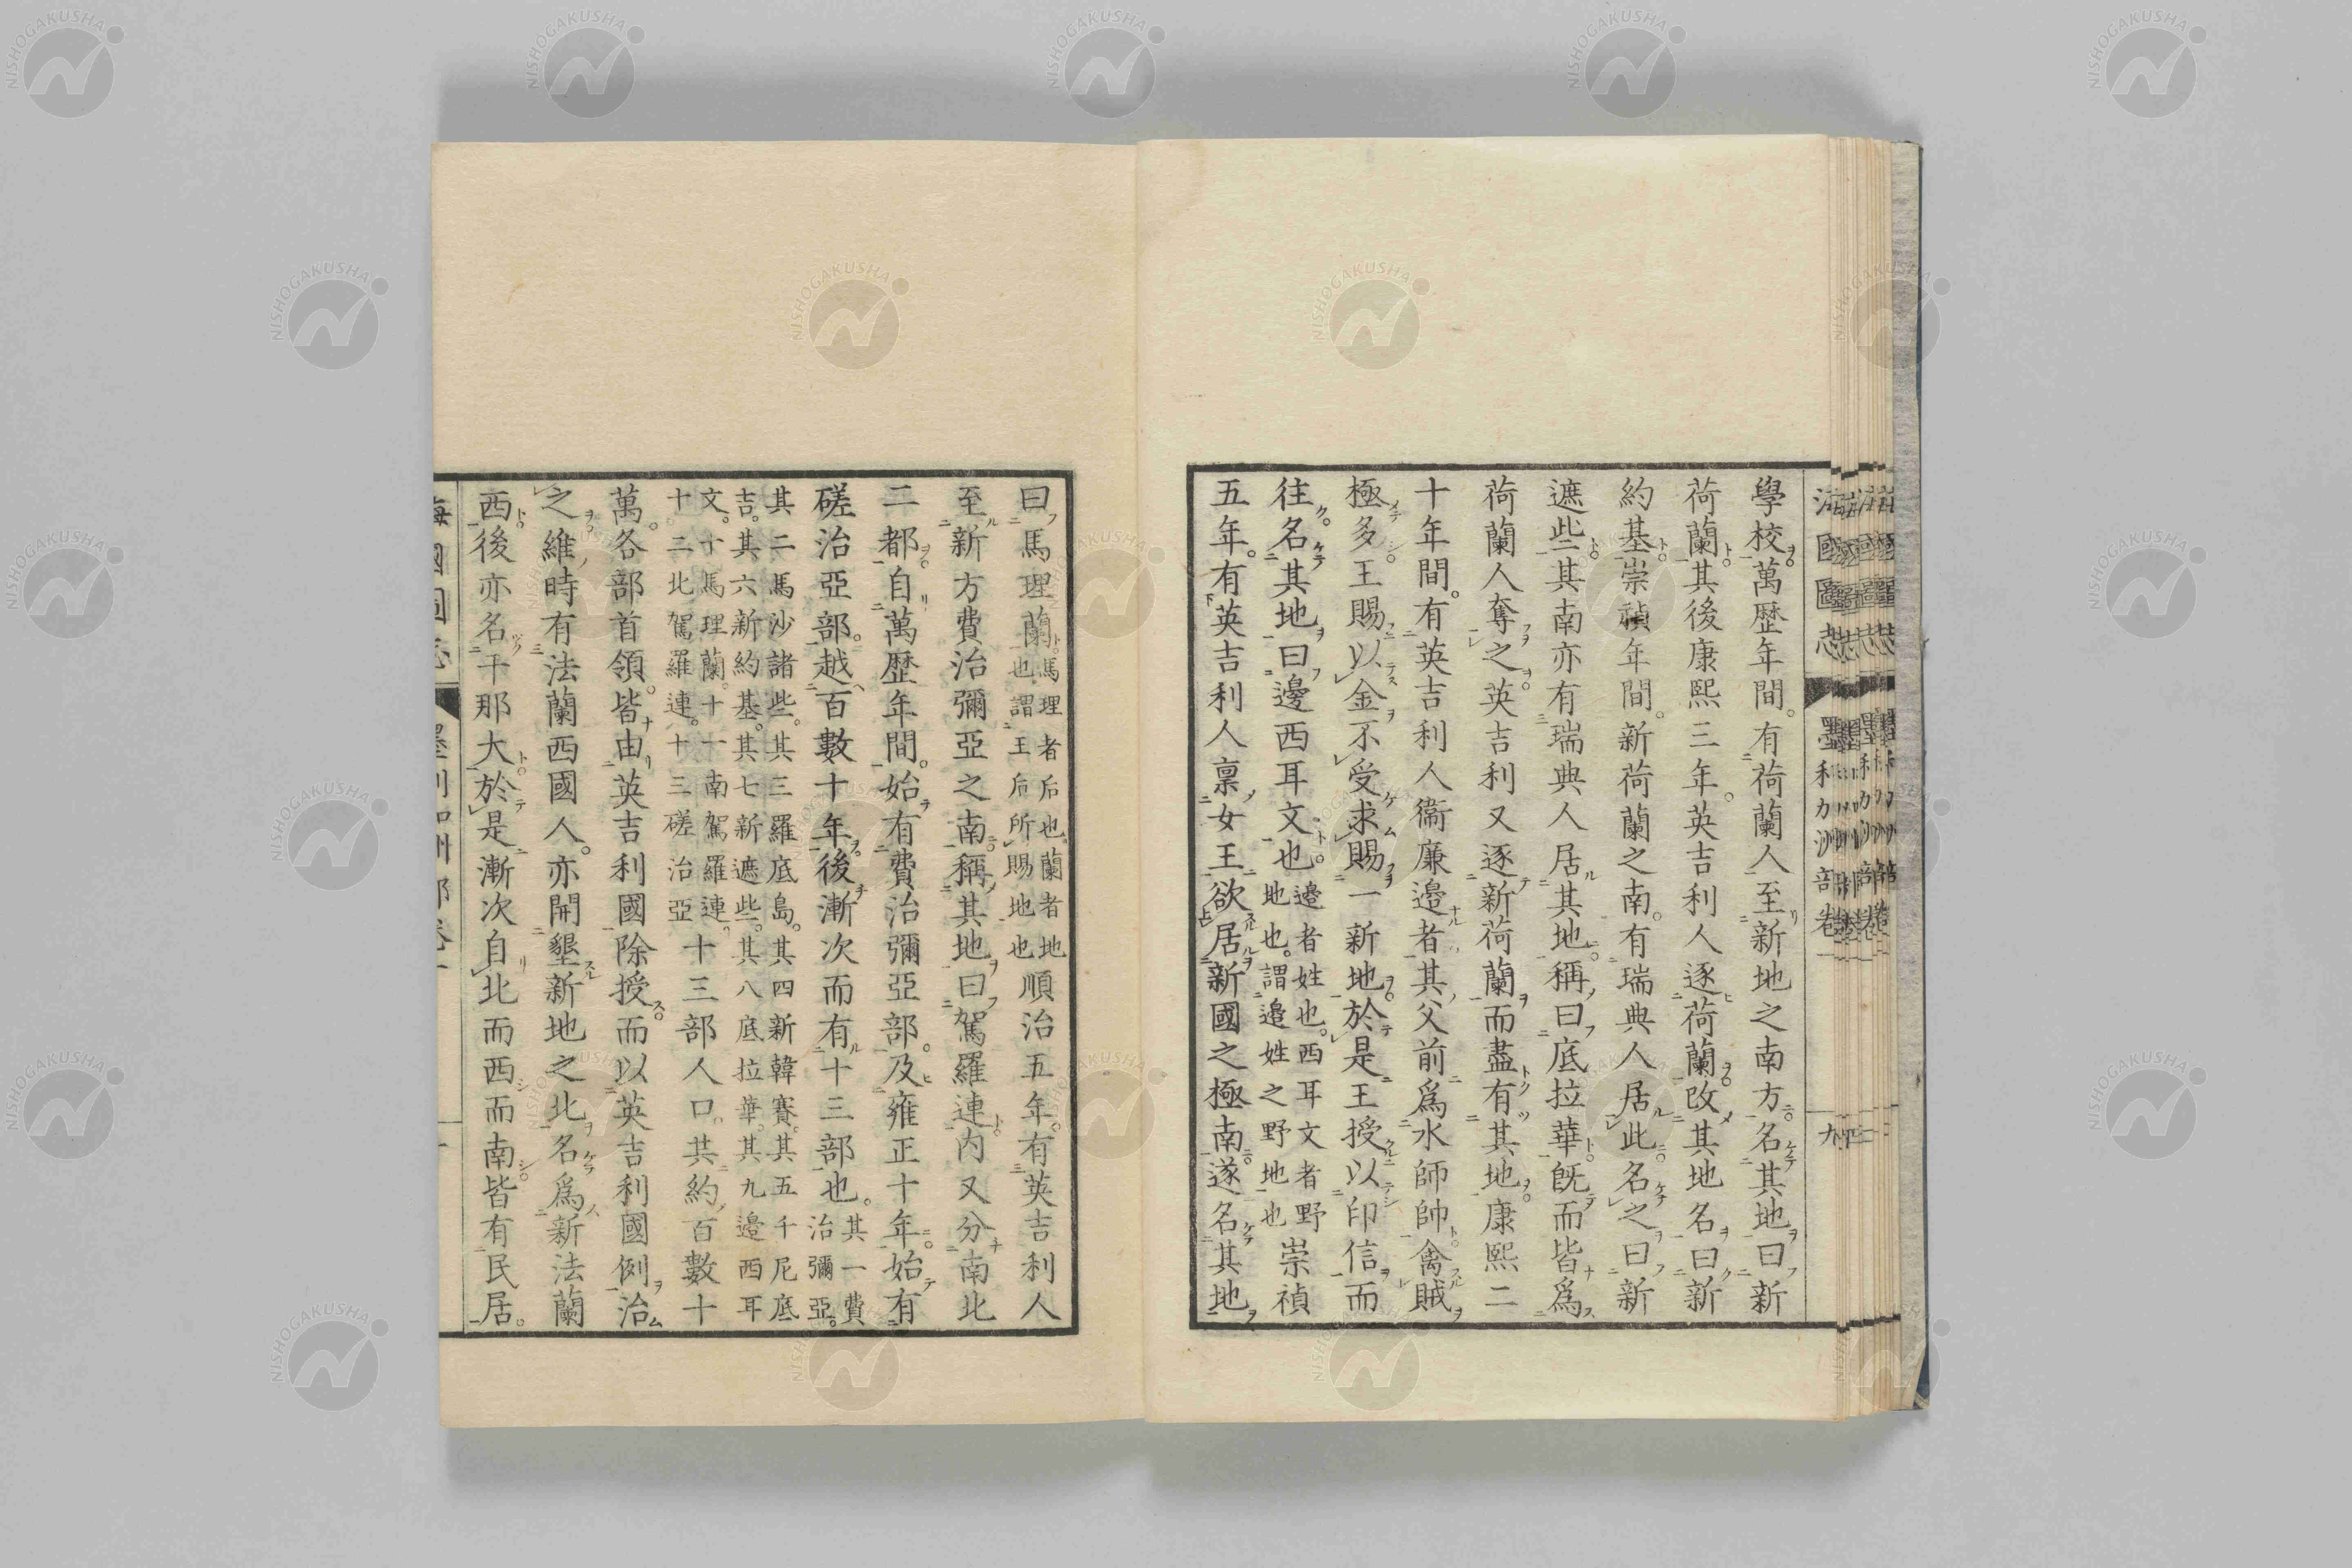 學校萬歷年間。有荷蘭人至新地之南方。名其地曰新
荷蘭。其後康熙三年。英吉利人逐荷蘭。改其地名曰新
約基。崇禎年間。新荷蘭之南。有瑞典人居此。名之曰新
遮些。其南亦有瑞典人居其地。稱曰底拉華。既而皆爲
荷蘭人奪之。英吉利又逐新荷蘭而盡有其地。康熙二
十年間。有英吉利人衞廉邊者。其父前爲水師帥。禽賊
極多。王賜以金不受。求賜一新地。於是王授以印信。而
往名其地曰邊西耳文也。邊者姓也。西耳文者野地也。謂邊姓之野地也崇禎
五年。有英吉利人稟女王。欲居新國之極南。遂名其地
曰馬理蘭。馬理者后也。蘭者地也謂王后所賜地也順治五年。有英吉利人
至新方費治彌亞之南。稱其地曰駕羅連。內又分南北
二都。自萬歷年間。始有費治彌亞部。及雍正十年。始有
磋治亞部。越百數十年。後漸次而有十三部也。其一費治彌亞。
其二馬沙諸些。其三羅底島。其四新韓賽。其五千尼底
吉。其六新約基。其七新遮些。其八底拉華。其九邊西耳
文。十馬理蘭。十一南駕羅連。
十二北駕羅連。十三磋治亞十三部人口。其約百數十
萬。各部首領。皆由英吉利國除授。而以英吉利國例治
之維時有法蘭西國人。亦開墾新地之北名爲新法蘭
西。後亦名干那大。於是漸次自北而西而南。皆有民居。
海國圖志
墨利加洲部卷一